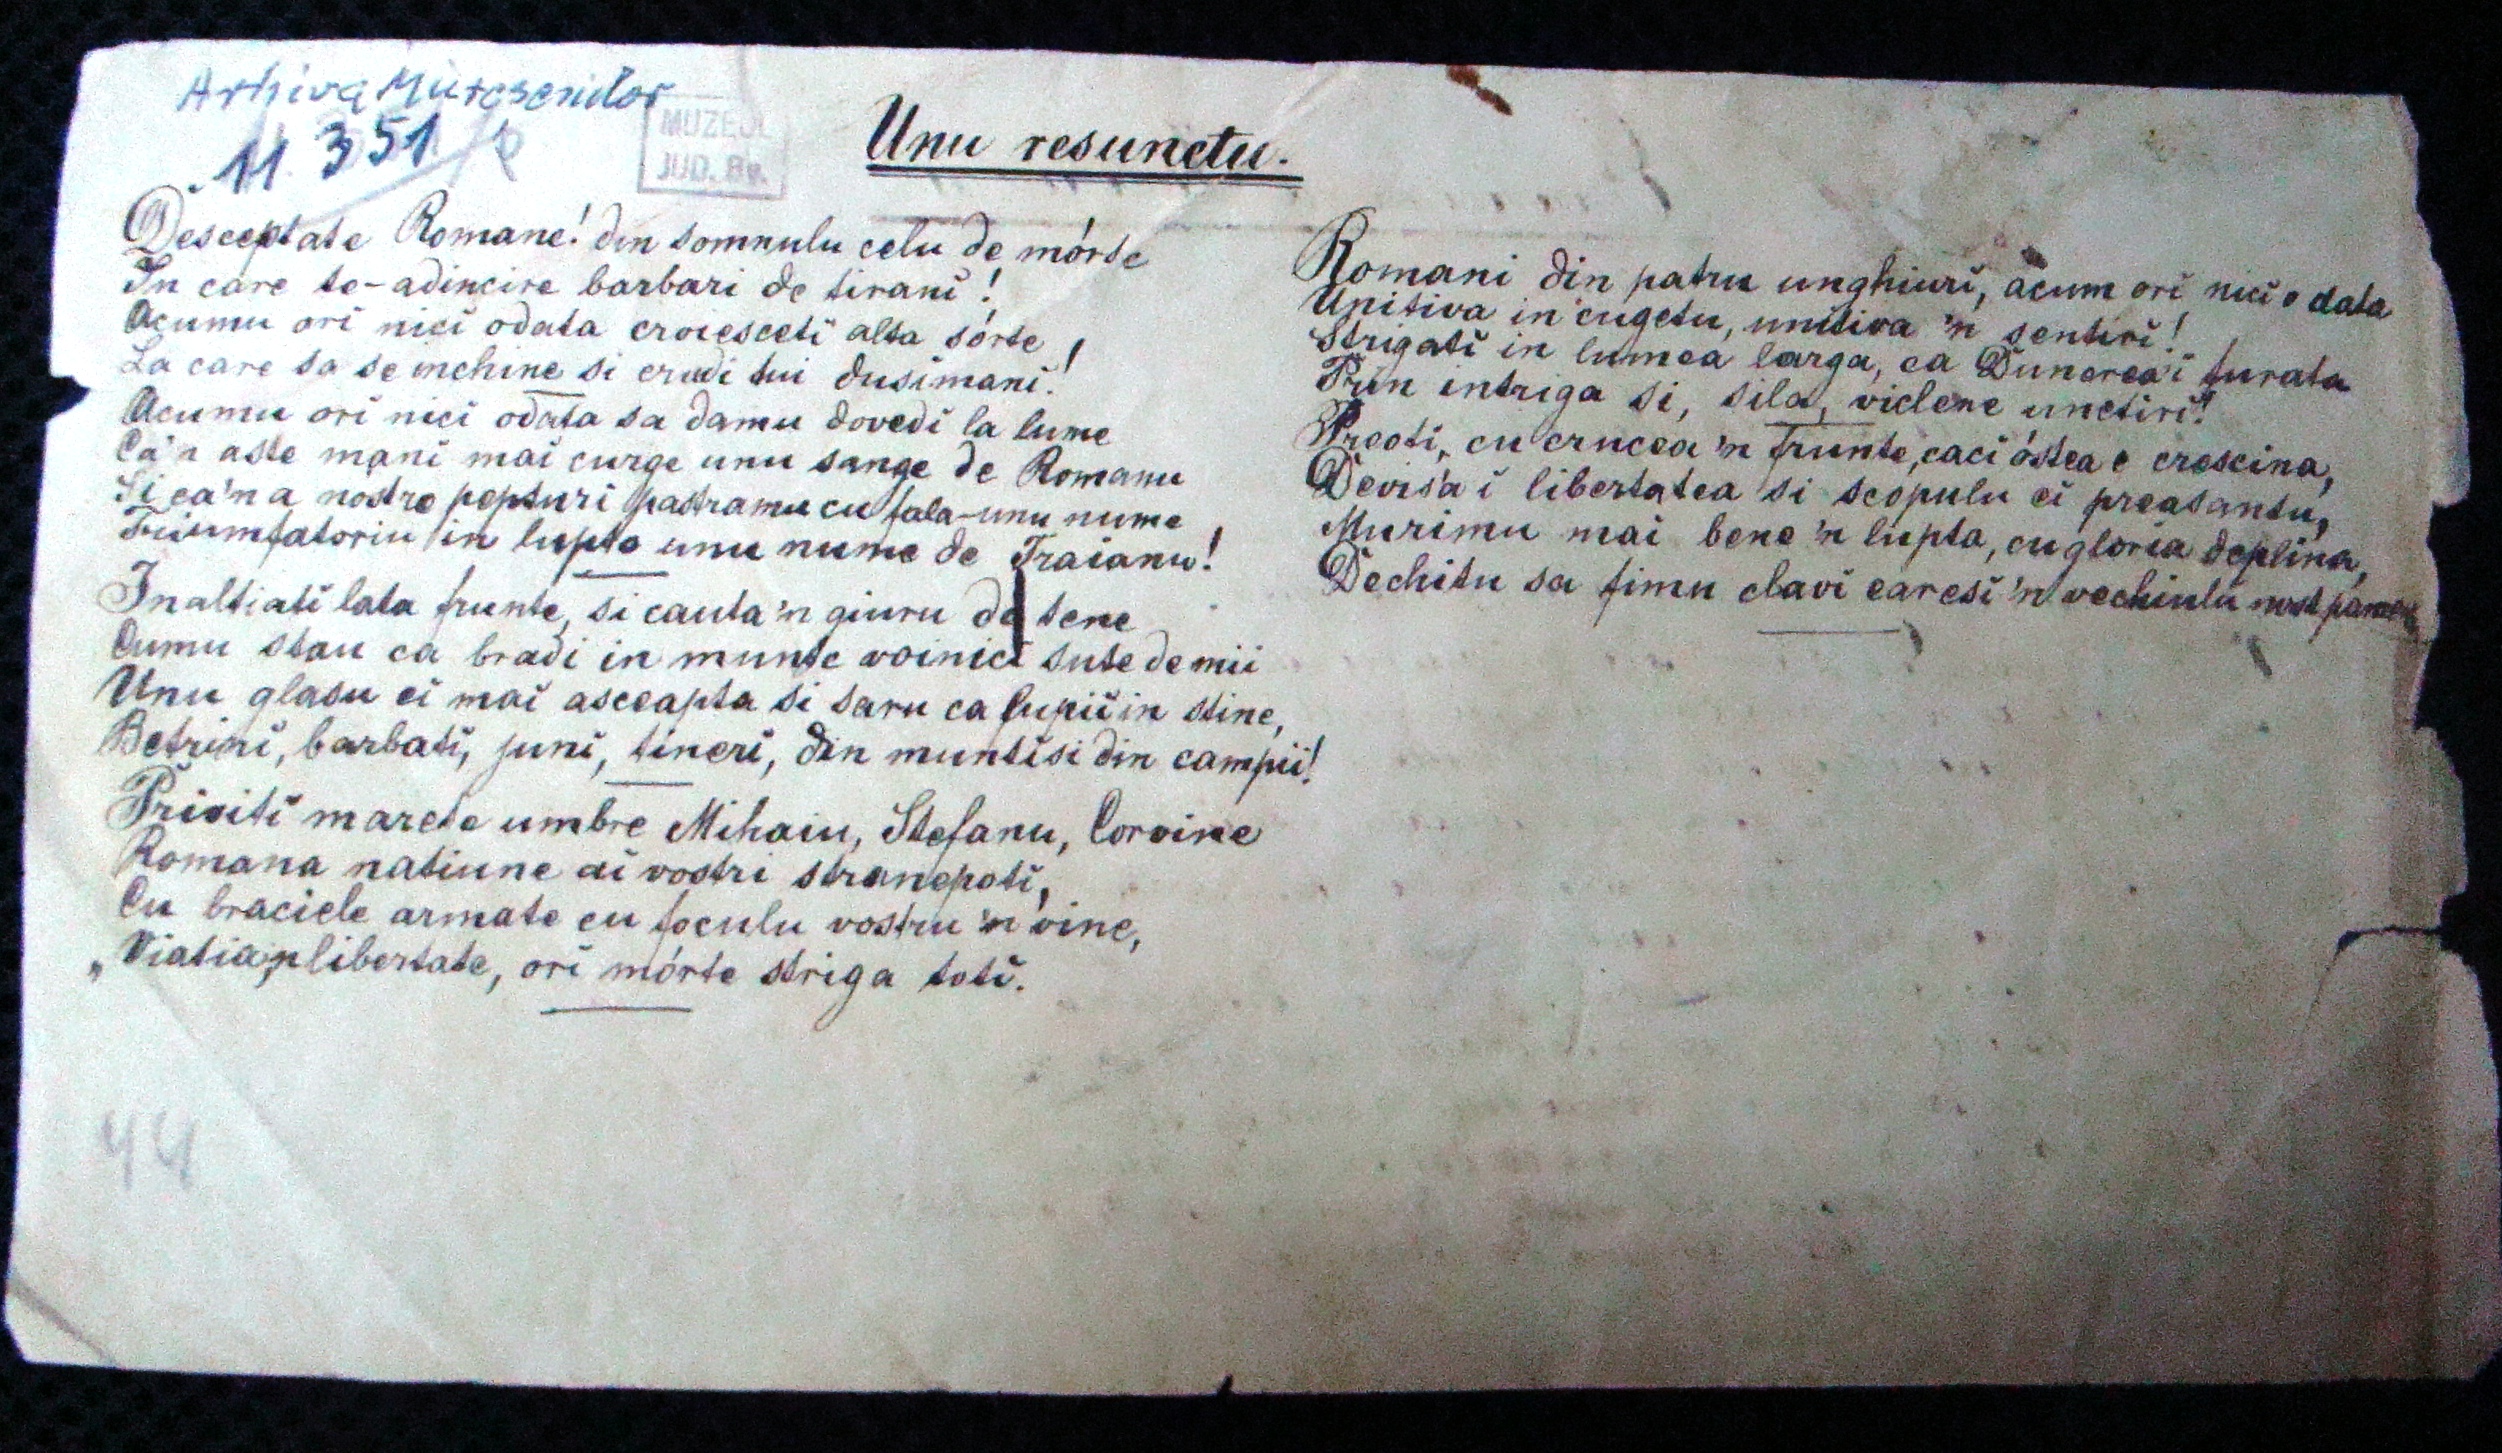 Arhiva Muresenilor
11. 351
MUZEUL
JUD. Bv.
Unu resunetu.
Desceptate Romane! din somnulu celu de mórte
In care te-adincire barbari de tirani!
Acumu ori nici odata croiesceti alta sórte,
La care sa se inchine si crudi tui dusimani!
Acumu ori nici odata sa damu dovedi la lume
Ca'n aste mani mai curge unu sange de Romanu
Si ca'n a nostre pepturi pastramu cu fala-unu nume
Triumfatoriu in lupte unu nume de Traianu!
Inaltiati lata frunte, si cauta'n giuru de tene
Cumu stau ca bradi in munte voinici sute de mii
Unu glasu ei mai asceapta si saru ca lupii in stine,
Betrini, barbati, juni, tineri, din munti si din campii!
Priviti marete umbre Mihaiu, Stefanu, Corvine
Romana natiune ai vostri stranepoti,
Cu braciele armate cu foculu vostru 'n vine,
„Viatia'n libertate, ori mórte striga toti.
Romani din patru unghiuri, acum ori nici o data
Unitiva in cugetu, unitiva 'n sentiri!
Strigati in lumea larga, ca Dunerea'i furata
Prin intriga si, sila, viclene unctiri!
Preoti, cu crucea 'n frunte, caci óstea e crescina,
Devis'a i libertatea si scopulu ei preasantu,
Murimu mai bene 'n lupta, cu gloria deplina,
Dechitu sa fimu clavi earesi 'n vechiulu nost
44